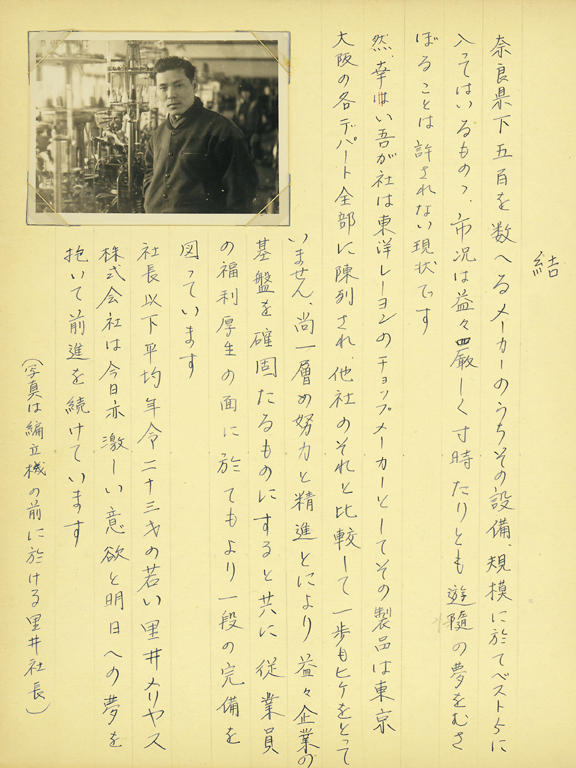 結
奈良県下五百を数へるメーカーのうちその設備、規模に於てベスト5に
入ってはいるものゝ、市況は益々厳しく寸時たりとも遊隨の夢をむさ
ぼることは許されない現状です
然、幸い吾が社は東洋レーヨンのチョップメーカーとしてその製品は東京
大阪の各デパート全部に陳列され、他社のそれと比較して一歩もヒケをとって
いません、尚一層の努力と精進とにより益々企業の
基盤を確固たるものにすると共に従業員
の福利厚生の面に於てもより一段の完備を
図っています
社長以下平均年令二十三才の若い里井メリヤス
株式会社は今日亦激しい意欲と明日への夢を
抱いて前進を続けています
(写真は編立機の前に於ける里井社長)